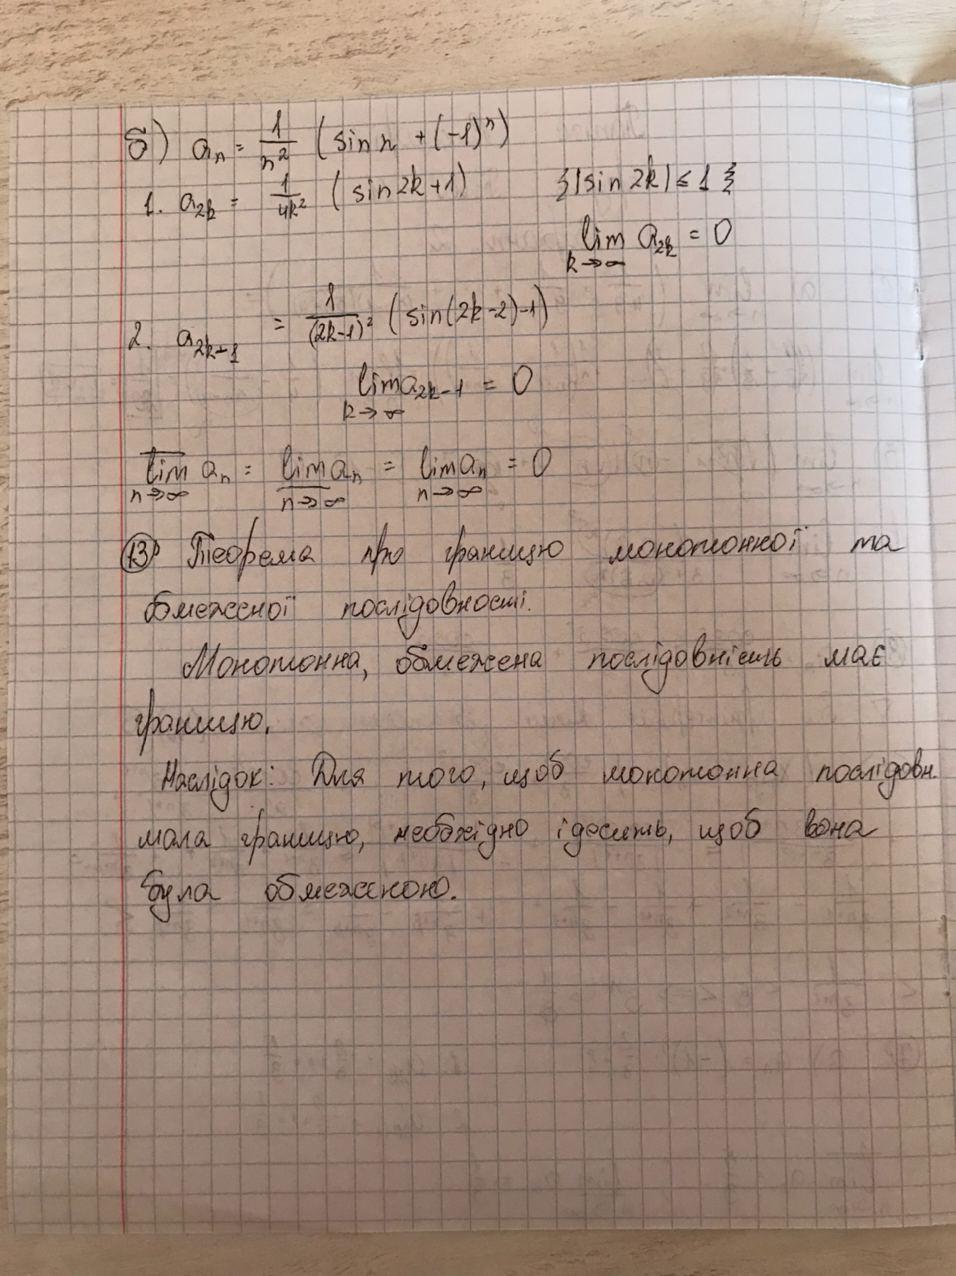 б) aₙ = 1/n² (sin n + (-1)ⁿ)
1. a₂ₖ = 1/4k² (sin 2k + 1) {|sin 2k| ≤ 1}
lim k→∞ a₂ₖ = 0
2. a₂ₖ₋₁ = 1/(2k-1)² (sin(2k-2)-1)
lim k→∞ a₂ₖ₋₁ = 0
l̅i̅m̅ n→∞ aₙ = l̲i̲m̲ n→∞ aₙ = lim n→∞ aₙ = 0
13 Теорема про границю монотонної та
обмеженої послідовності.
Монотонна, обмежена послідовність має
границю.
Наслідок: Для того, щоб монотонна послідовн.
мала границю, необхідно і досить, щоб вона
була обмеженою.